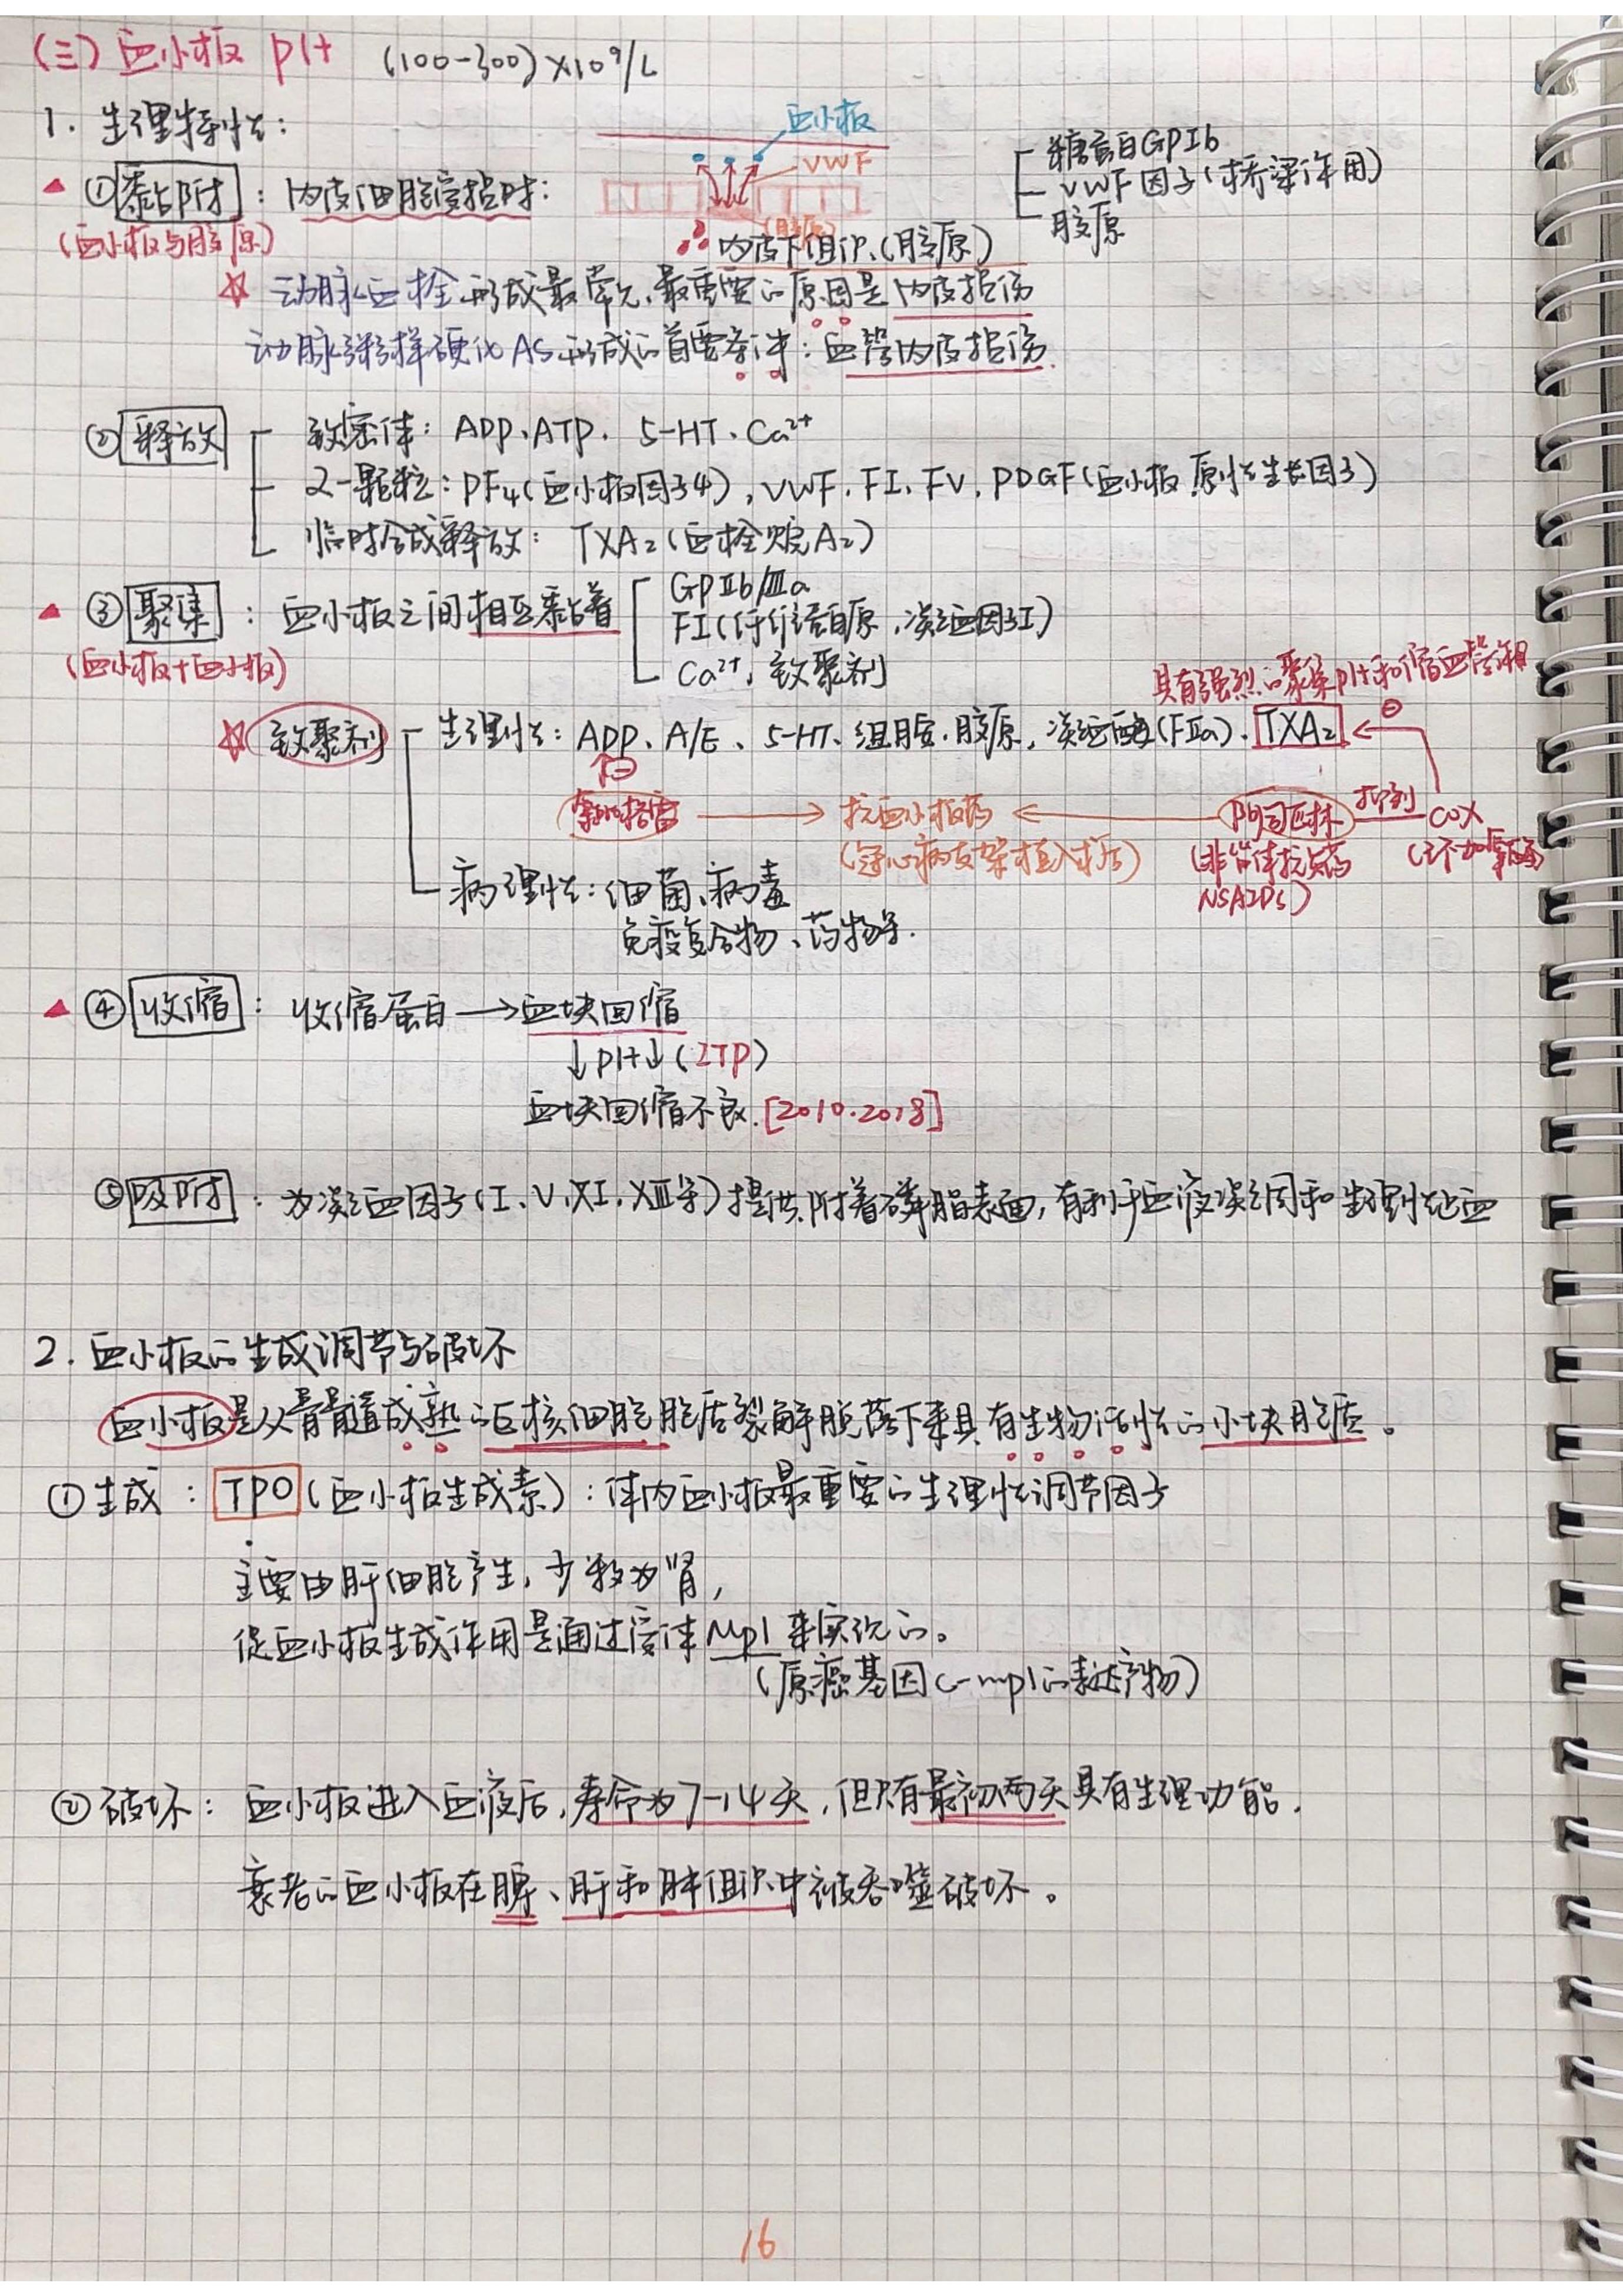 (三) 血小板 plt (100-300)×10⁹/L
1. 生理特性:
血小板
VWF
(胶原)
▲ ①黏附: 内皮细胞受损时:
(血小板与胶原)
∴ 内皮下组织(胶原)
糖蛋白GPIb
VWF因子(桥梁作用)
胶原
☆ 动脉血栓形成最常见、最重要的原因是内皮损伤
动脉粥样硬化AS形成的首要条件: 血管内皮损伤.
②释放
致密体: ADP、ATP、5-HT、Ca²⁺
α-颗粒: PF₄(血小板因子4), VWF, FI, FV, PDGF(血小板原性生长因子)
临时合成释放: TXA₂(血栓烷A₂)
▲ ③聚集: 血小板之间相互黏着
(血小板+血小板)
GPⅡb/Ⅲa
FI(纤维蛋白原, 凝血因子I)
Ca²⁺, 致聚剂
具有强烈的聚集plt和缩血管作用
☆ 致聚剂
生理性: ADP、A/E、5-HT、组胺、胶原, 凝血酶(FⅡa)、TXA₂ ← ⊖
↑⊖
氯吡格雷 → 抗血小板药 ← 阿司匹林 抑制 COX
(冠心病支架植入术后)
(非甾体抗炎药
NSAIDs)
(环加氧酶)
病理性: 细菌、病毒
免疫复合物、药物等.
▲ ④收缩: 收缩蛋白 → 血块回缩
↓plt↓(ITP)
血块回缩不良. [2010.2018]
⑤吸附: 为凝血因子(I、V、XI、XIII等)提供附着磷脂表面, 有利于血液凝固和生理性止血
2. 血小板的生成调节与破坏
血小板是从骨髓成熟的巨核细胞胞质裂解脱落下来具有生物活性的小块胞质。
①生成: TPO(血小板生成素): 体内血小板最重要的生理性调节因子
主要由肝细胞产生, 少数为肾,
促血小板生成作用是通过受体Mpl来实现的。
(原癌基因c-mpl的表达产物)
②破坏: 血小板进入血液后, 寿命为7-14天, 但只有最初两天具有生理功能.
衰老的血小板在脾、肝和肺组织中被吞噬破坏。
16